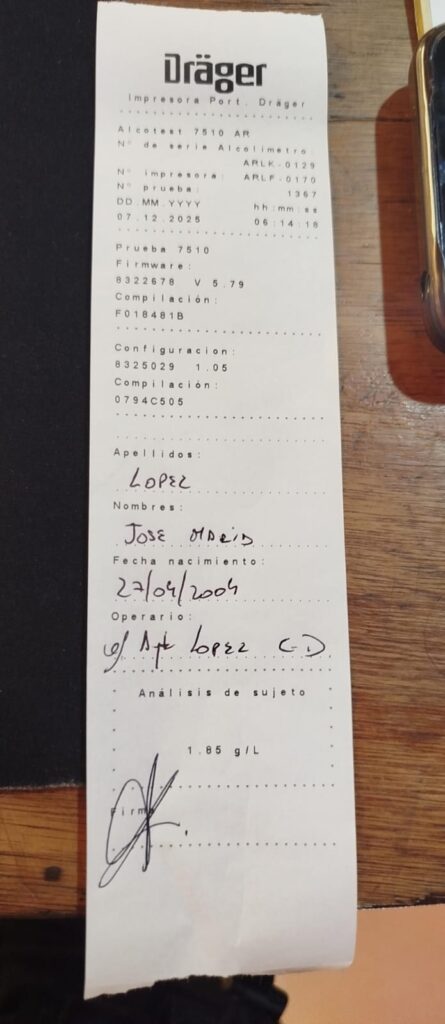 Dräger
Impresora Port. Dräger
Alcotest 7510 AR
N° de serie Alcolimetro:
ARLK-0129
N° impresora: ARLF-0170
N° prueba: 1367
DD.MM.YYYY hh:mm:ss
07.12.2025 06:14:18
Prueba 7510
Firmware:
8322678 V 5.79
Compilación:
F018481B
Configuracion:
8325029 1.05
Compilación:
0794C505
Apellidos:
LOPEZ
Nombres:
JOSE MARIA
Fecha nacimiento:
27/04/2004
Operario:
LOPEZ
Análisis de sujeto
1.85 g/L
Firma